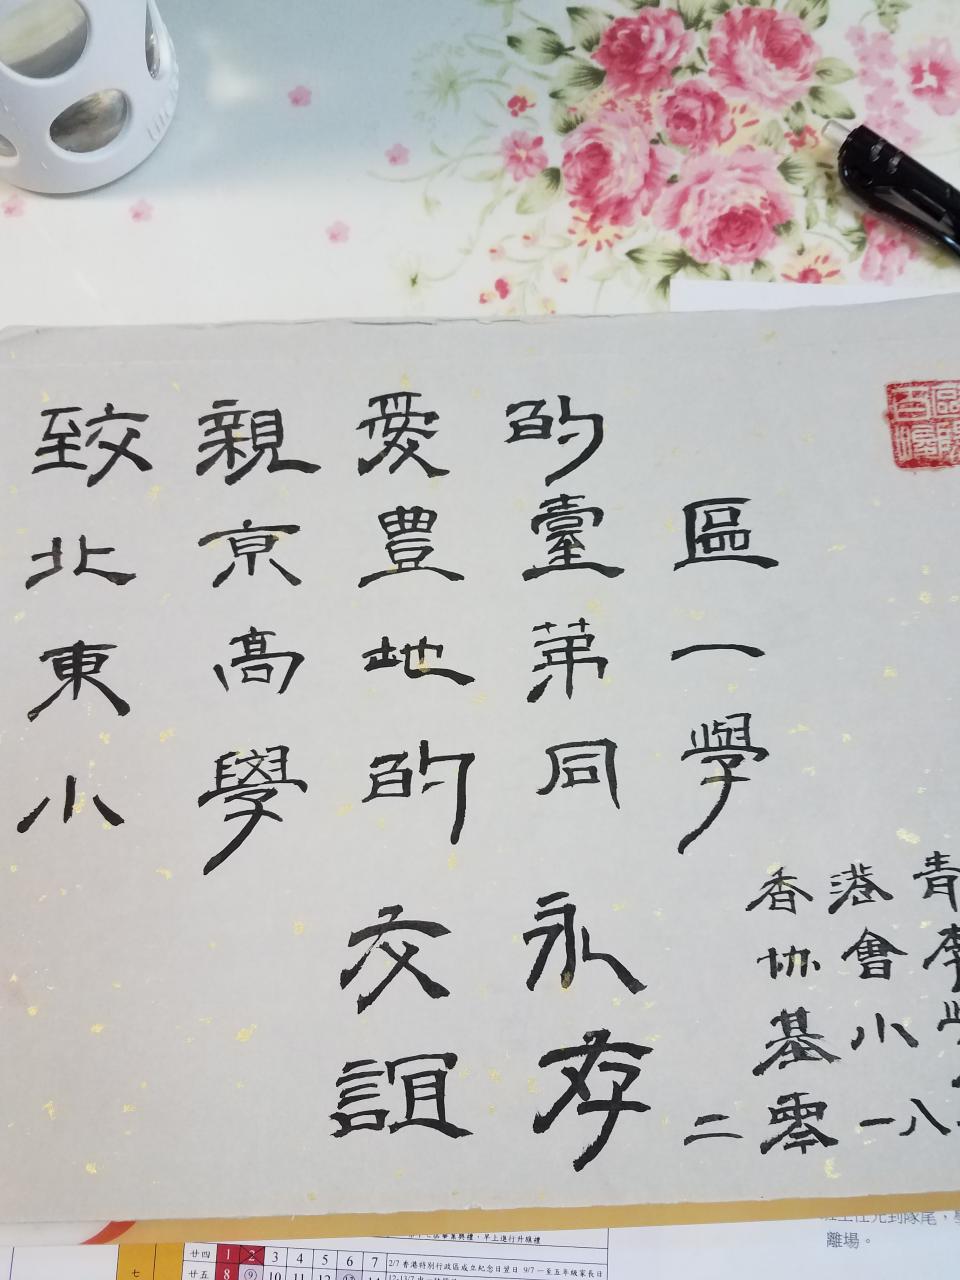 致親愛的
北京豐臺區
東高地第一
小學的同學
交永
誼存
香港青
協會李
基小
二零一八
離場。
廿四 1 2 3 4 5 6 7
2/7 香港特別行政區成立紀念日翌日 9/7 一至五年級家長日
廿五 8 9 10 11 12 13 14
七